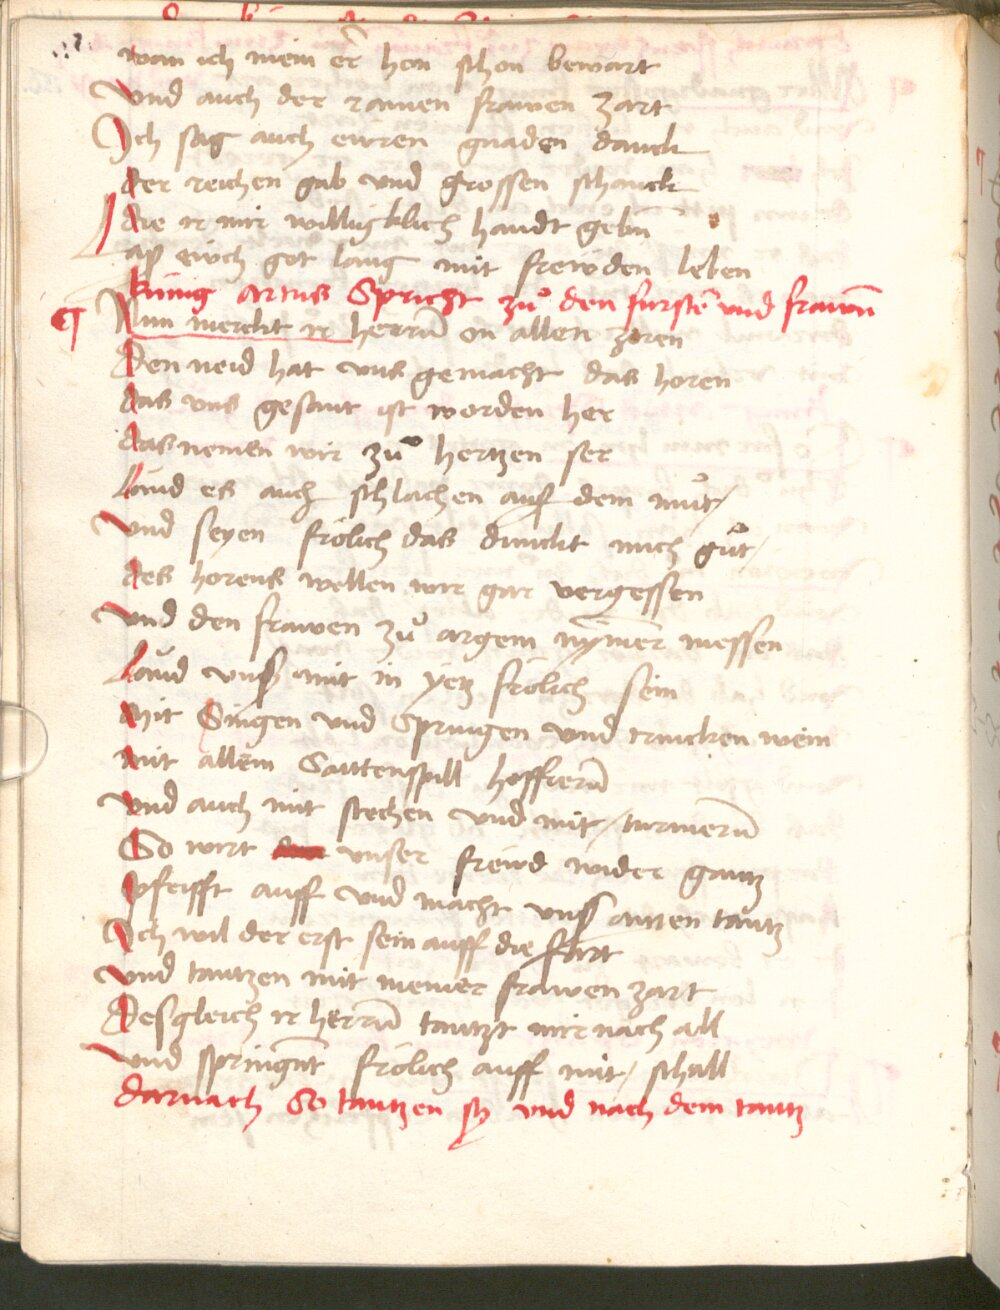 wan ich mein er hon schon bewart
Vnd auch der rainen frawen zart
Ich sag auch ewren gnaden danck
der reichen gab vnd grossen schanck
die ir mir willigklich handt gebn
Las eüch got lang mit frewden leben
Künig Artus Spricht zů den fursten vnd frawn
¶ Nun merckt ir herrn on allen zoren
Den neid hat vns gemacht das horen
das vns gesant ist worden her
das nemen wir zů hertzen ser
Land es auch schlachen auß dem můt /
vnd seyen frölich das dunckt mich gůt /
des horens wellen wir gar vergessen
vnd den frawen zů argem nymer messen
Land vnß mit in yetz frölich sein
Mit Singen vnd Springen vnd trincken wein
mit allem Saittenspill hoffiern
vnd auch mit stechen vnd mit / turniern
So wirt vnser freüd wider gantz
pfeifft auff vnd macht vnß ainen tantz
Ich wil der erst sein auff die fart
vnd tantzen mit meiner frawen zart
Desgleich ir herrn tantzt mir nach all
vnd springent frölich auff mit / schall
darnach So tantzen sy vnd nach dem tantz